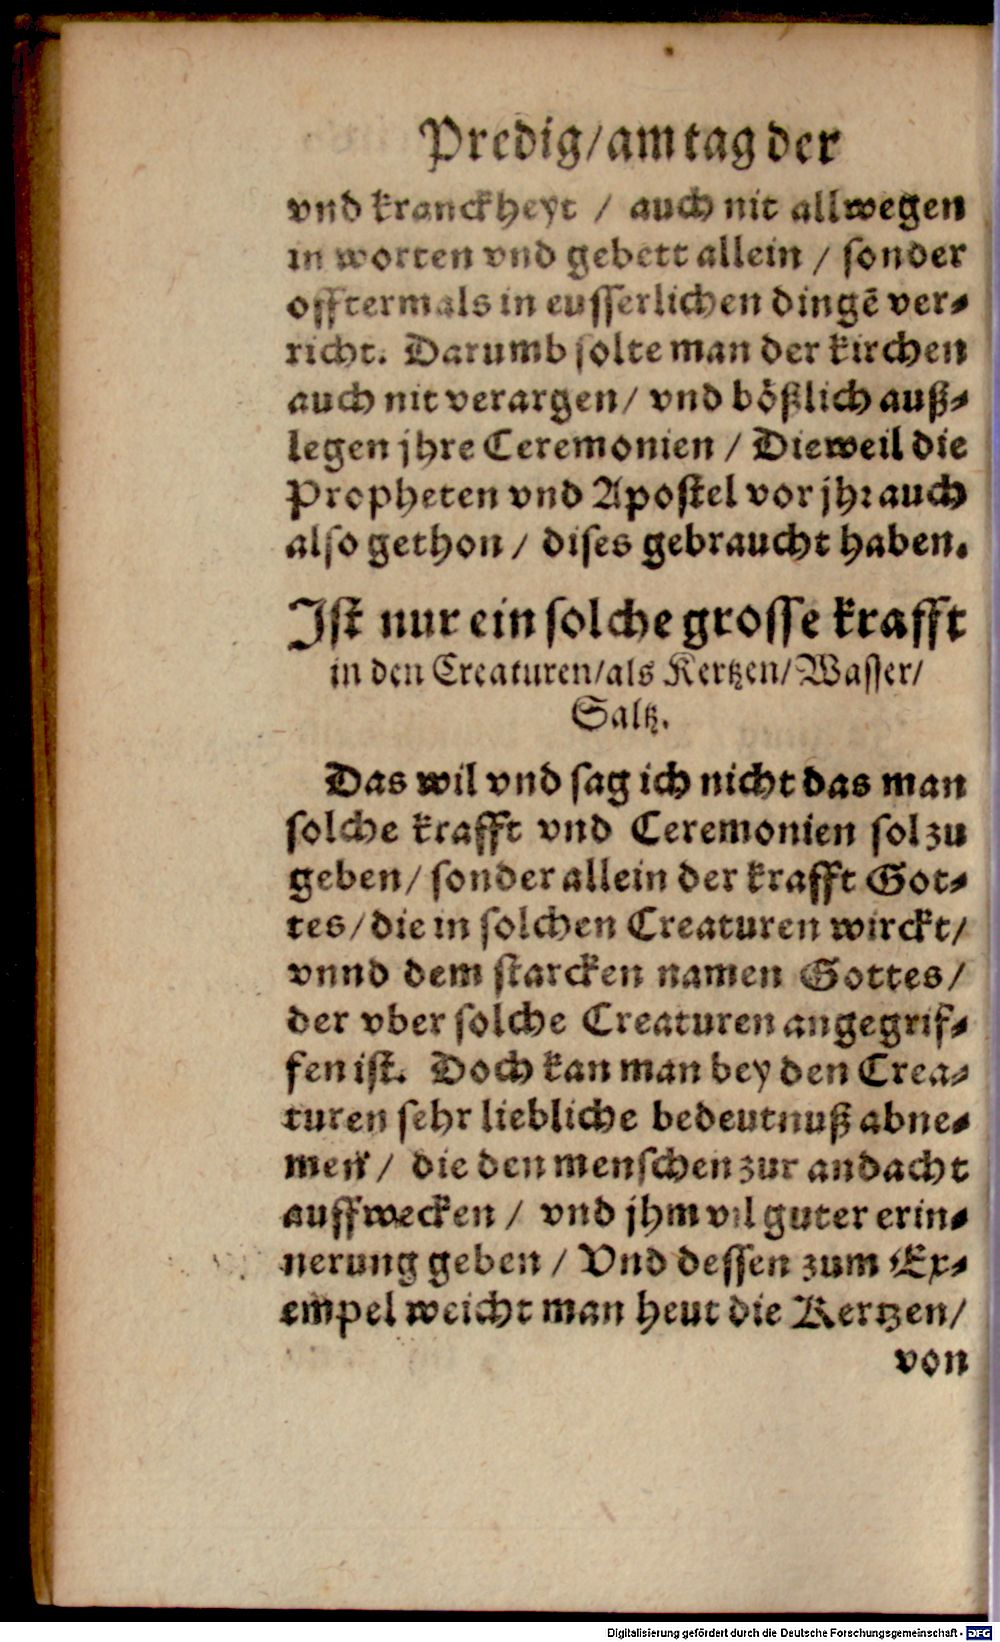 Predig/am tag der
vnd kranckheyt / auch nit allwegen
in worten vnd gebett allein / sonder
offtermals in eusserlichen dingē ver⸗
richt. Darumb solte man der kirchen
auch nit verargen/ vnd bößlich auß⸗
legen jhre Ceremonien / Dieweil die
Propheten vnd Apostel vor jhr auch
also gethon / dises gebraucht haben.
Ist nur ein solche grosse krafft
in den Creaturen/als Kertzen/Wasser/
Saltz.
Das wil vnd sag ich nicht das man
solche krafft vnd Ceremonien sol zu
geben/ sonder allein der krafft Got⸗
tes/die in solchen Creaturen wirckt/
vnnd dem starcken namen Gottes/
der vber solche Creaturen angegrif⸗
fen ist. Doch kan man bey den Crea⸗
turen sehr liebliche bedeutnuß abne⸗
men / die den menschen zur andacht
auffwecken / vnd jhm vil guter erin⸗
nerung geben / Vnd dessen zum Ex⸗
empel weicht man heut die Kertzen/
von
Digitalisierung gefördert durch die Deutsche Forschungsgemeinschaft - DFG